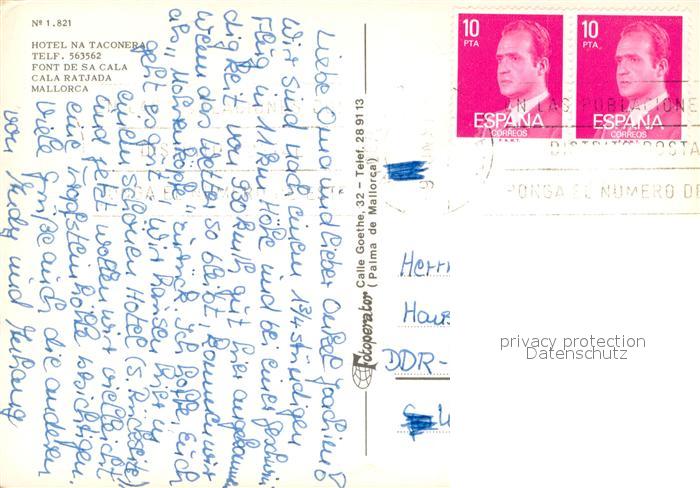 Nº 1.821
HOTEL NA TACONERA
TELF. 563562
FONT DE SA CALA
CALA RATJADA
MALLORCA
Liebe Oma und lieber Onkel Joachim!
Wir sind nach einem 1 3/4 stündigen
Flug in 11 km Höhe und bei einer Geschwin-
digkeit von 930 km/h gut hier angekommen.
Wenn das Wetter so bleibt, kommen wir
als "Mohrenköpfe" zurück. Ich hoffe, Euch
geht es gut! Wir wohnen hier in
einem schönen Hotel (s. Rückseite)
und jetzt wollen wir vielleicht
eine Tropfsteinhöhle besichtigen.
Viele Grüße auch die anderen
von und
Fotoperator Calle Goethe, 32 – Telef. 28 91 13
(Palma de Mallorca)
10
PTA
ESPAÑA
CORREOS
10
PTA
ESPAÑA
CORREOS
EN LAS POBLACIONE
DISTRITO POSTA
PONGA EL NUMERO DE
Herrn
DDR-
privacy protection
Datenschutz